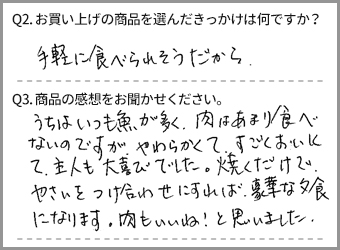 Q2. お買い上げの商品を選んだきっかけは何ですか？
手軽に食べられそうだから．
Q3. 商品の感想をお聞かせください。
うちはいつも魚が多く、肉はあまり食べ
ないのですが、やわらかくて、すごくおいしく
て、主人も大喜びでした。焼くだけで、
やさいをつけ合わせにすれば、豪華な夕食
になります。肉もいいね！と思いました．